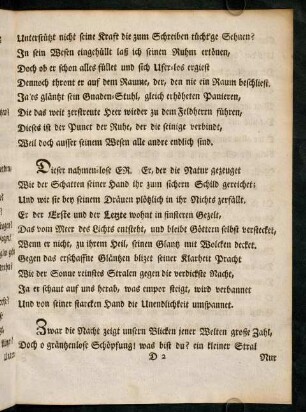 Unterstützt nicht seine Kraft die zum Schreiben tücht'ge Sehnen?
In sein Wesen eingehüllt laß ich seinen Ruhm ertönen,
Doch ob er schon alles füllet und sich Ufer-los ergiest
Dennoch thront er auf dem Raume, der, den nie ein Raum beschliest.
Ja es gläntzt sein Gnaden-Stuhl, gleich erhöheten Panieren,
Die das weit zerstreute Heer wieder zu dem Feldherrn führen,
Dieses ist der Punct der Ruhe, der die seinige verbindt,
Weil doch ausser seinem Wesen alle andre endlich sind.
Dieser nahmen-lose ER. Er, der die Natur gezeuget
Wie der Schatten seiner Hand ihr zum sichern Schild gereichet;
Und wie sie bey seinem Dräuen plötzlich in ihr Nichts zerfällt.
Er der Erste und der Letzte wohnt in finsteren Gezelt,
Das vom Meer des Lichts entsteht, und bleibt Göttern selbst verstecket,
Wenn er nicht, zu ihrem Heil, seinen Glantz mit Wolcken decket.
Gegen das erschaffne Gläntzen blizet seiner Klarheit Pracht
Wie der Sonne reinsten Stralen gegen die verdickste Nacht,
Ja er schaut auf uns herab, was empor steigt, wird verbannet
Und von seiner starcken Hand die Unendlichkeit umspannet.
Zwar die Nacht zeigt unsern Blicken jener Welten große Zahl,
Doch o gräntzenlose Schöpfung! was bist du? ein kleiner Stral
D 2
Nur